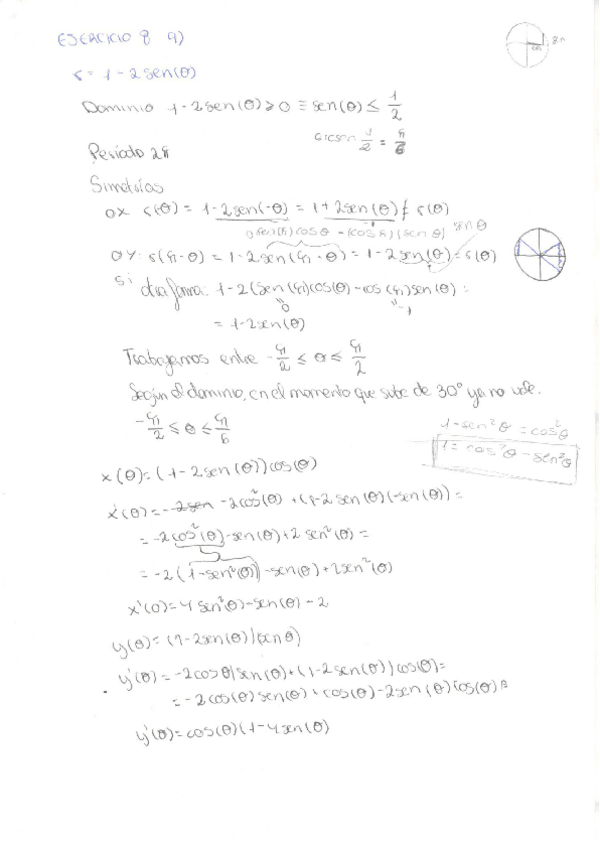 EJERCICIO 8 9)
r = 1 - 2sen(θ)
Dominio 1 - 2sen(θ) ≥ 0 ≡ sen(θ) ≤ 1/2
arcsen 1/2 = π/6
Período 2π
Simetrías
OX r(θ) = 1 - 2sen(-θ) = 1 + 2sen(θ) ≠ r(θ)
OY: r(π - θ) = 1 - 2sen(π - θ) = 1 - 2sen(θ) = r(θ)
Si
otra forma: 1 - 2(sen(π)cos(θ) - cos(π)sen(θ) =
"0 "-1
= 1 - 2sen(θ)
Trabajamos entre -π/2 ≤ θ ≤ π/2
Según el dominio, en el momento que sube de 30° ya no vale.
-π/2 ≤ θ ≤ π/6
1 - sen²θ = cos²θ
1 = cos²θ - sen²θ
x(θ) = (1 - 2sen(θ))cos(θ)
x'(θ) = -2cos²(θ) + (1 - 2sen(θ)(-sen(θ)) =
= -2cos²(θ) - sen(θ) + 2sen²(θ) =
= -2(1 - sen²(θ)) - sen(θ) + 2sen²(θ)
x'(θ) = 4sen²θ) - sen(θ) - 2
y(θ) = (1 - 2sen(θ))(senθ)
y'(θ) = -2cosθ(sen(θ) + (1 - 2sen(θ))cos(θ) =
= -2cos(θ)sen(θ) + cos(θ) - 2sen(θ)cos(θ)
y'(θ) = cos(θ)(1 - 4sen(θ)